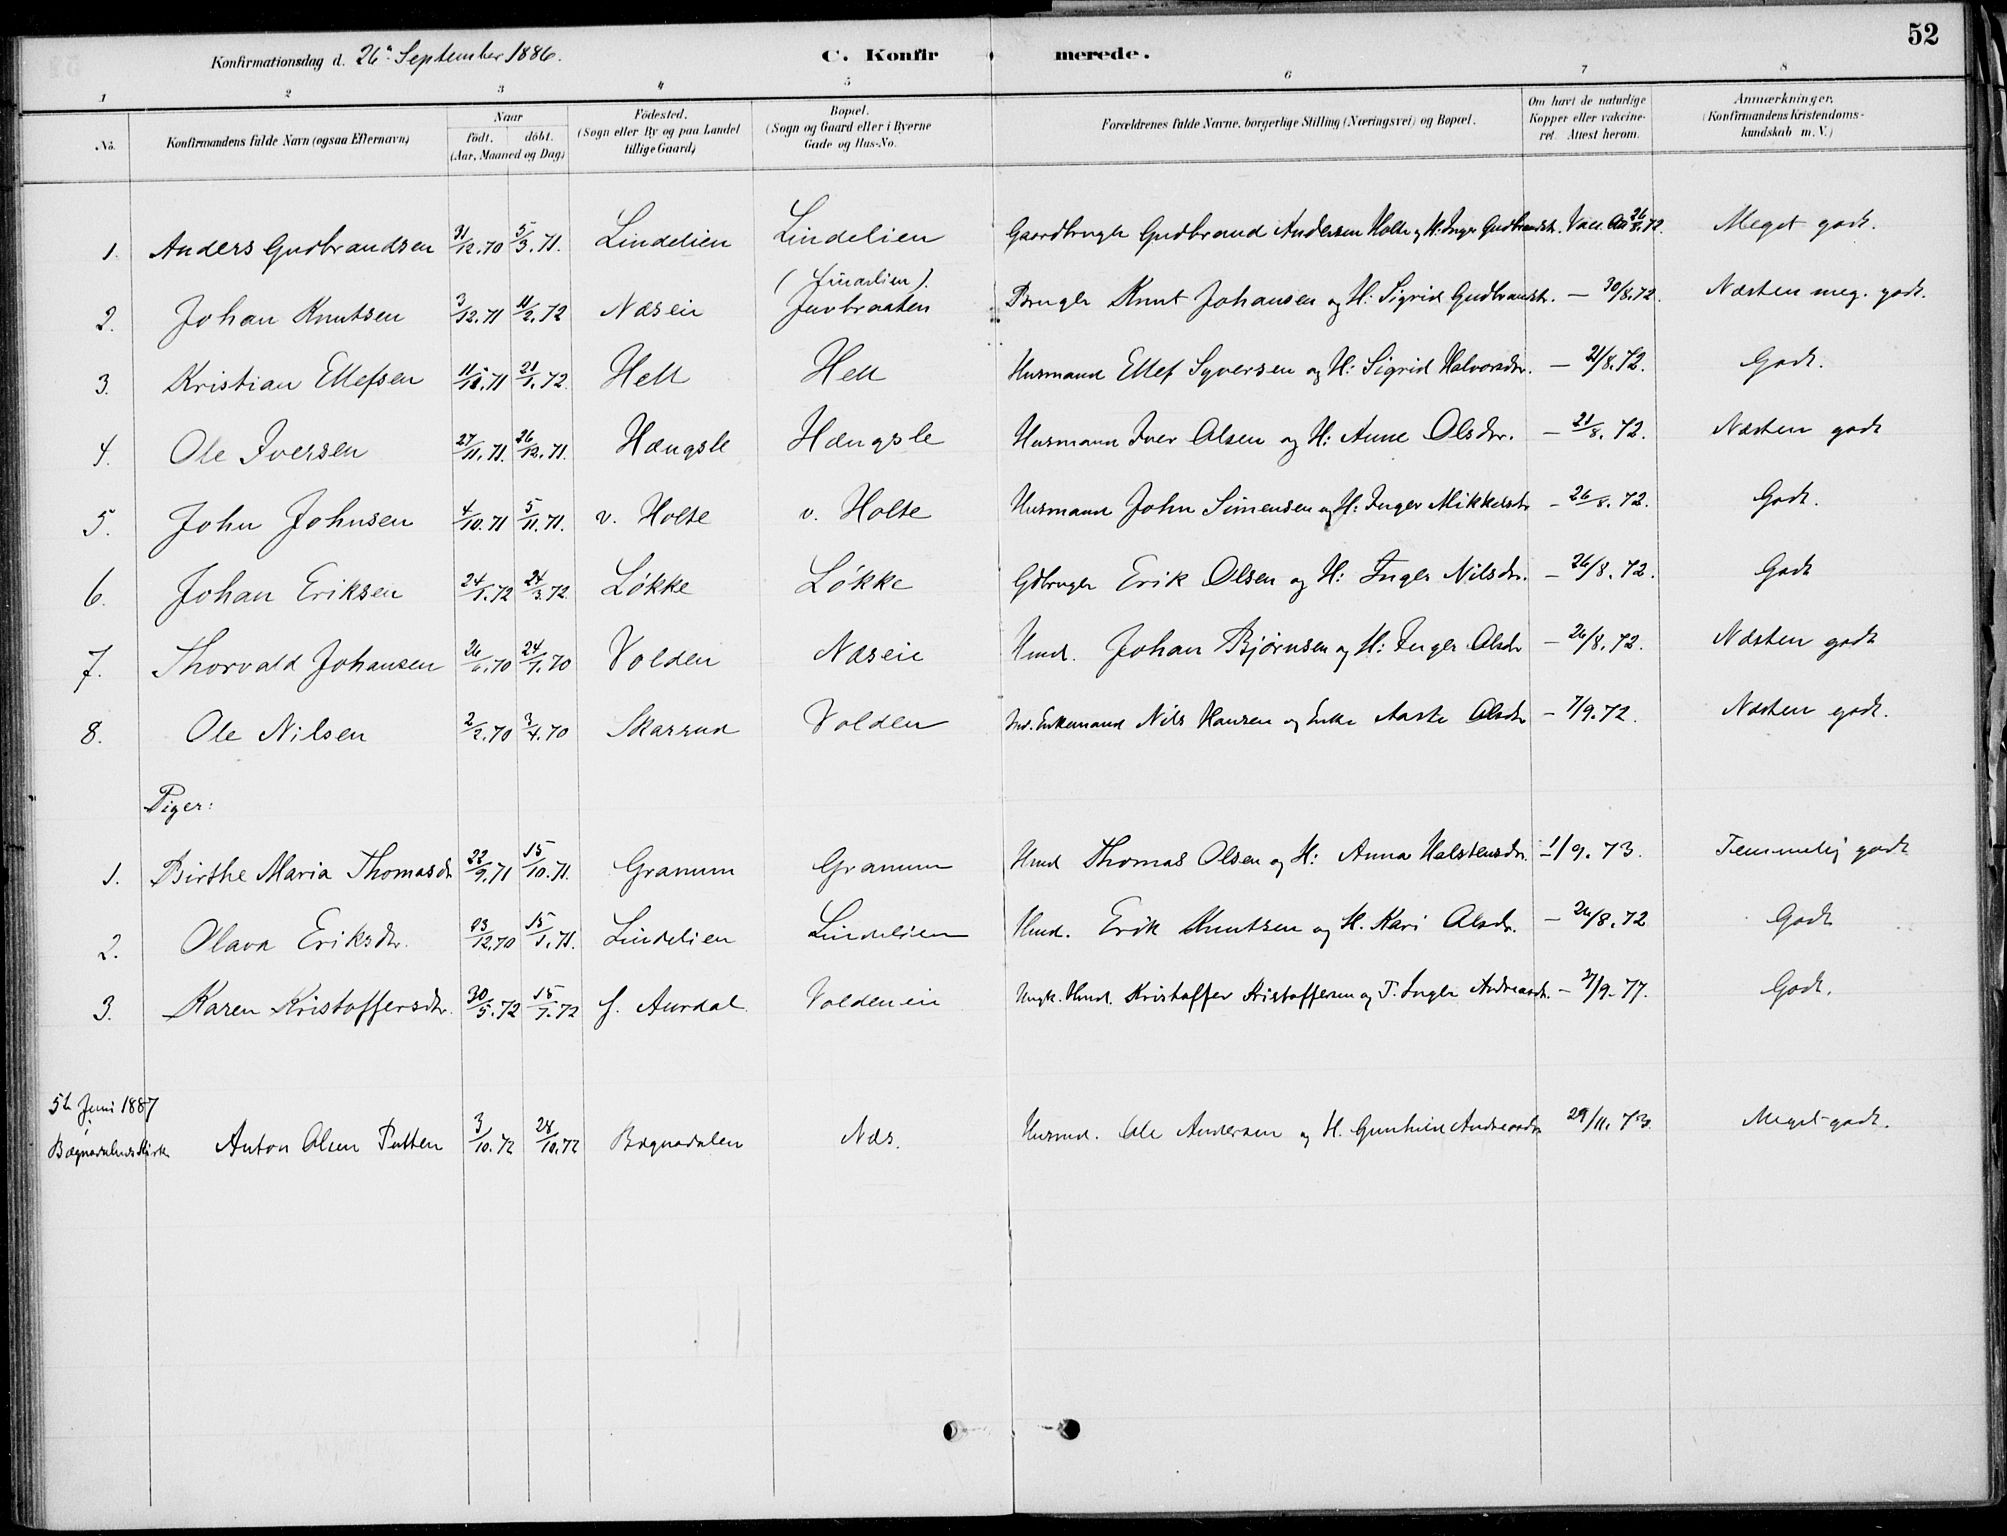 52
Konfirmationsdag d. 26de September 1886.
C. Konfirmerede.
1 2 3 4 5 6 7 8
No. Konfirmandens fulde Navn (ogsaa Efternavn) Naar födt. döbt. (Aar, Maaned og Dag) Födested. (Sogn eller By og paa Landet tillige Gaard) Bopæl. (Sogn og Gaard eller i Byerne Gade og Hus-No. Forældrenes fulde Navne, borgerlige Stilling (Næringsvei) og Bopæl. Om havt de naturlige Kopper eller vakcineret. Attest herom. Anmærkninger, (Konfirmandens Kristendomskundskab m. V.)
1. Anders Gudbrandsen 31/12.70 5/3.71. Lindelien Lindelien Gaardbruger Gudbrand Andersen Holte og H: Inger Gudbrandsdr. Vacc. 26/8.72. Meget godt.
2. Johan Knutsen 3/12.71 11/2.72 Næseie (Lindelien). Juvbraaten Bruger Knut Johansen og H: Sigrid Gudbrandsdr. — 30/8.72. Næsten meg. godt.
3. Kristian Ellefsen 11/10.71 21/1.72. Hell Hell Husmand Ellef Syversen og H: Sigrid Halvorsdr. — 21/8.72. Godt.
4. Ole Iversen 27/11.71. 26/12.71. Hængsle Hængsle Husmand Iver Olsen og H: Anne Olsdr. — 21/8.72. Næsten godt
5. John Johnsen 4/10.71 5/11.71. v. Holte v. Holte Husmand John Simensen og H: Inger Mikkelsdr — 26/8.72. Godt.
6. Johan Eriksen 24/1.72 24/3.72. Løkke Løkke Gdbruger Erik Olsen og H: Inger Nilsdr. — 26/8.72. Godt
7. Thorvald Johansen 26/6.70 24/7.70 Volden Næseie Hmd. Johan Bjørnsen og H: Inger Olsdr — 26/8.72. Næsten godt
8. Ole Nilsen 2/2.70 3/4.70 Skarrud Volden Ind. Enkemand Nils Hansen og Enke Aaste Olsdr — 7/9.72. Næsten godt.
Piger:
1. Birthe Maria Thomasdr 22/9.71 15/10.71. Granum Granum Hmd Thomas Olsen og H: Anna Halstensdr. — 1/9.73. Temmelig godt
2. Olava Eriksdr. 23/12.70 15/1.71. Lindelien Lindelien Hmd. Erik Knutsen og H. Kari Olsdr. — 26/8.72 Godt
3. Karen Kristoffersdr. 30/5.72 15/7.72 S. Aurdal Voldeneie Ungk. Hmd. Kristoffer Kristoffersen og P. Inger Andreasdr. — 27/9.77. Godt.
5te Juni 1887
Bægnadalens Kirk Anton Olsen Putten 3/10.72 28/10.72 Bægnadalen Næs. Husmd. Ole Andersen og H. Gunhild Andreasdr 29/11.73. Meget godt.